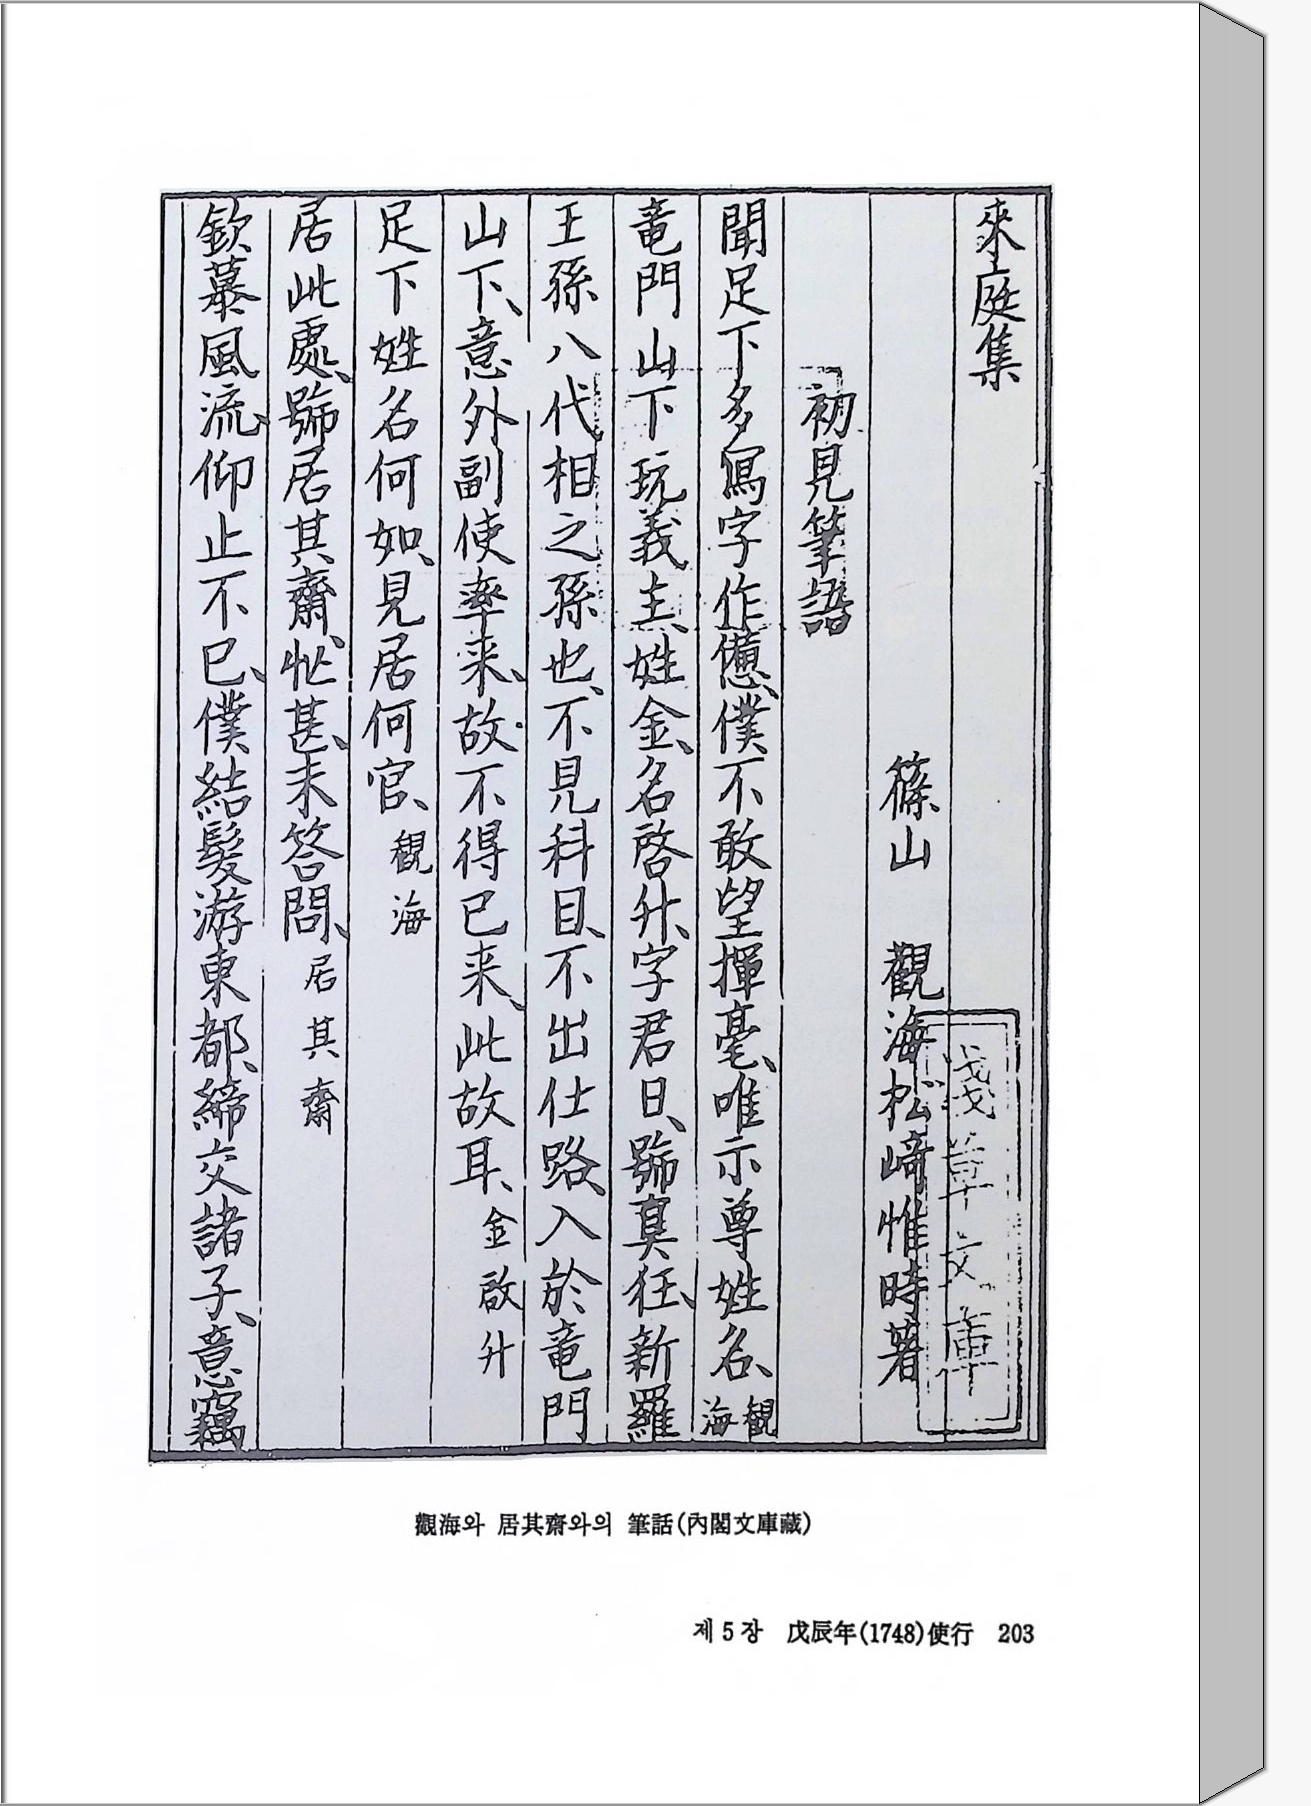 來庭集
篠山 觀海松﨑惟時著
初見筆語
聞足下多寫字作憊、僕不敢望揮毫、唯示尊姓名、觀海
竜門山下玩義主、姓金、名啓升、字君日、號真狂、新羅
王孫八代相之孫也、不見科目、不出仕路、入於竜門
山下、意外副使率来、故不得已来、此故耳、金啟升
足下姓名何如、見居何官、観海
居此處、號居其齋、忙甚、未答問、居其齋
欽慕風流、仰止不已、僕結髮游東都、締交諸子、意竊
淺草文庫
觀海와 居其齋와의 筆話(內閣文庫藏)
제 5 장 戊辰年(1748)使行 203